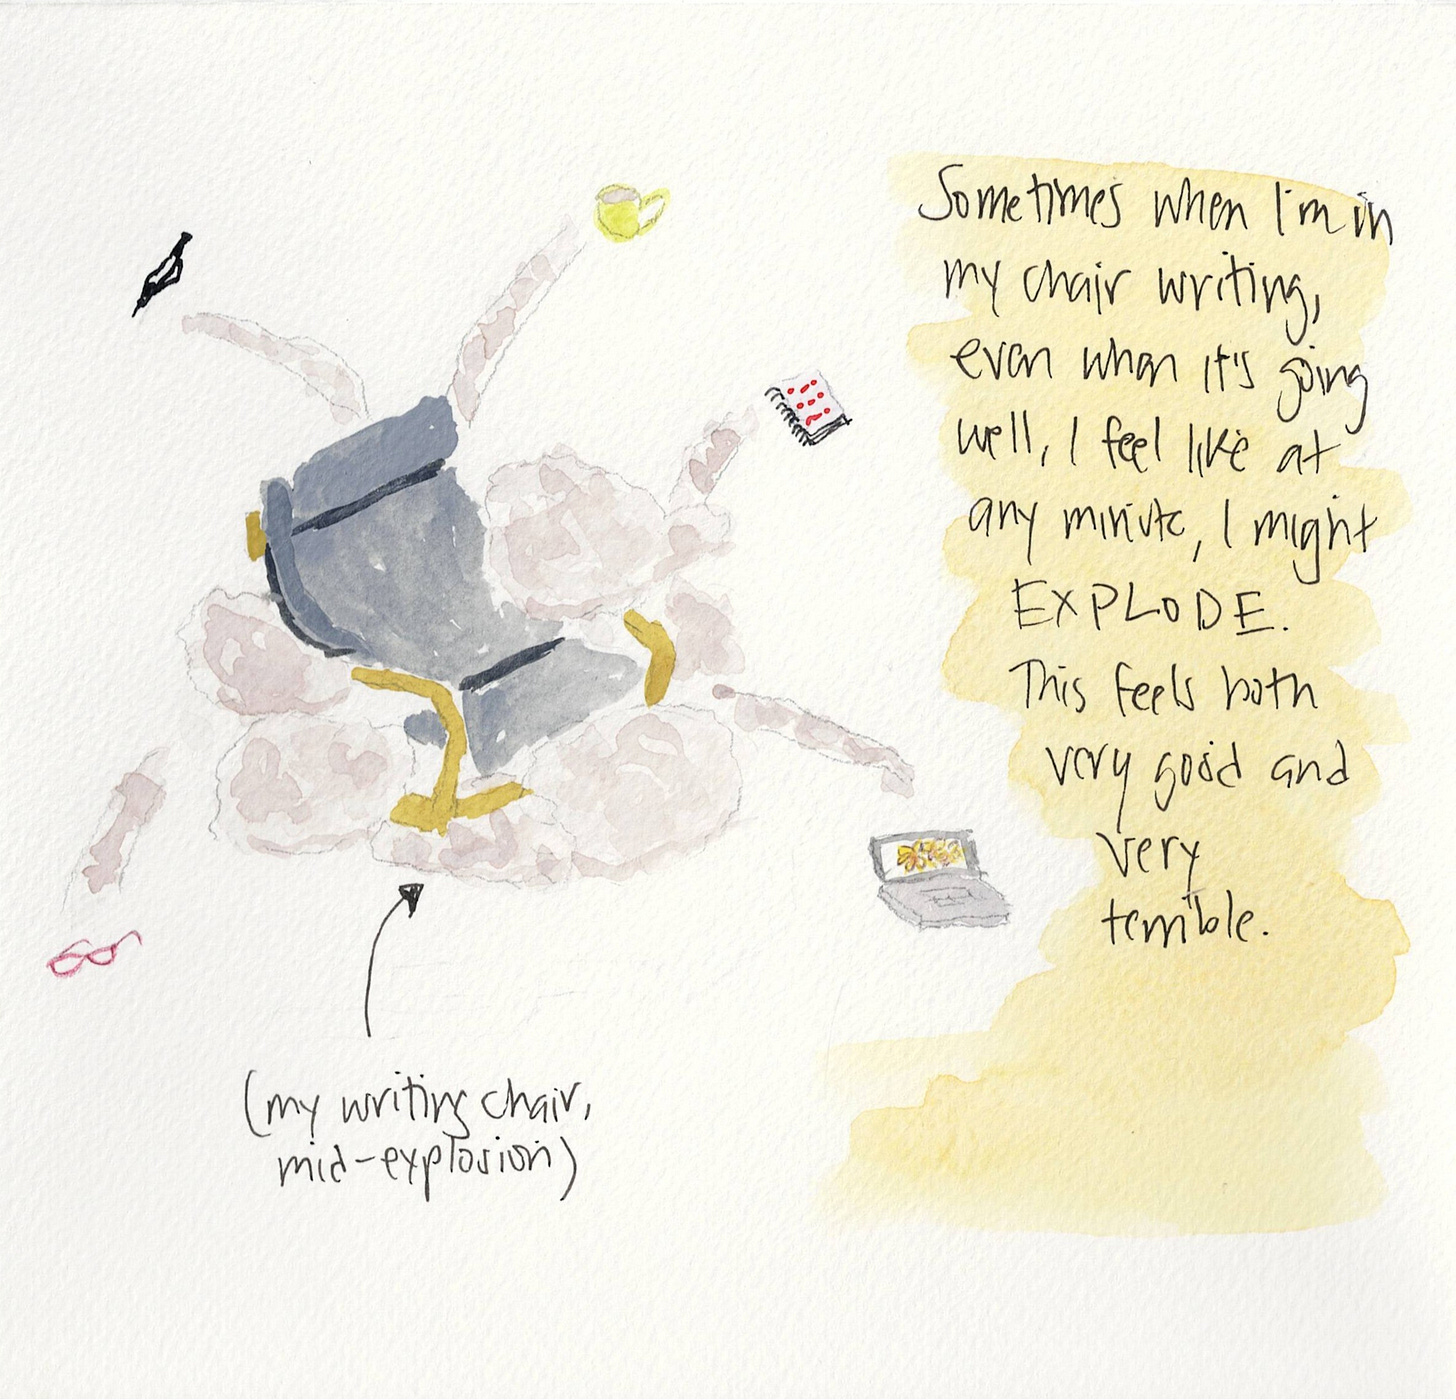 Sometimes when I'm in
my chair writing,
even when it's going
well, I feel like at
any minute, I might
EXPLODE.
This feels both
very good and
very
terrible.
(my writing chair,
mid-explosion)